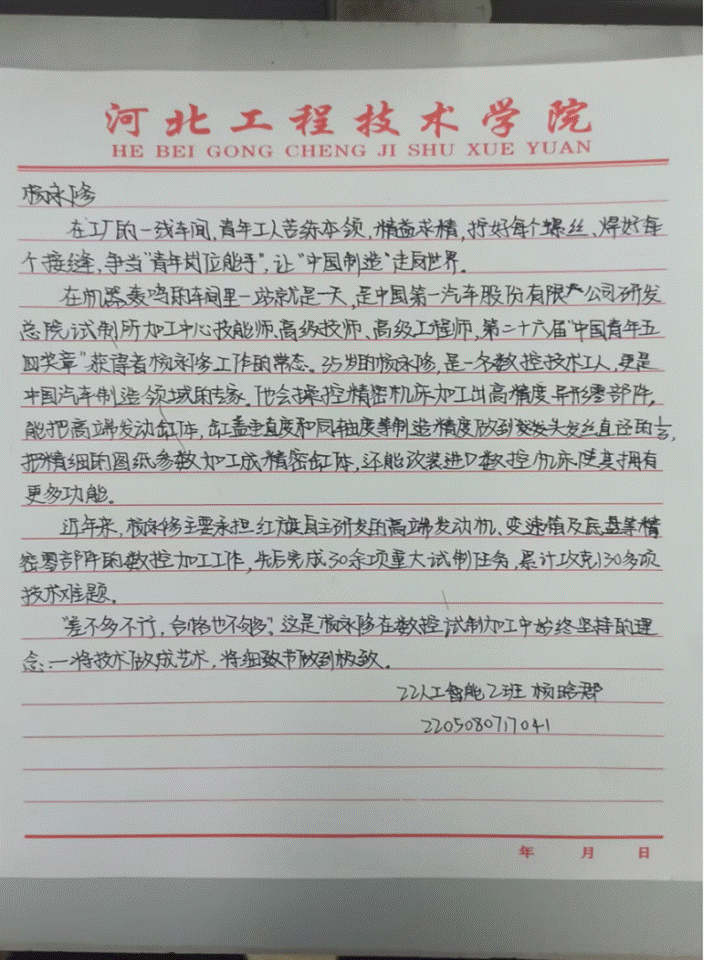 河北工程技术学院
HE BEI GONG CHENG JI SHU XUE YUAN
杨永修
在工厂的一线车间,青年工人苦练本领,精益求精,拧好每个螺丝、焊好每
个接缝,争当“青年岗位能手”,让“中国制造”走向世界。
在机器轰鸣的车间里一站就是一天,是中国第一汽车股份有限公司研发
总院试制所加工中心技能师、高级技师、高级工程师,第二十六届“中国青年五
四奖章”获得者杨永修工作的常态。35岁的杨永修,是一名数控技术工人,更是
中国汽车制造领域的专家。他会操控精密机床加工出高精度异形零部件,
能把高端发动缸体,缸盖垂直度和同轴度等制造精度做到头发丝直径的
把精细的图纸参数加工成精密缸体,还能改装进口数控机床,使其拥有
更多功能。
近年来,杨永修主要承担红旗自主研发的高端发动机、变速箱及底盘等精
密零部件的数控加工工作,先后完成30余项重大试制任务,累计攻克130多项
技术难题。
“差不多不行,合格也不够”,这是杨永修在数控试制加工中始终坚持的理
念:一将技术做成艺术,将细致节做到极致。
22人工智能乙班 杨晗郡
2205080717041
年 月 日